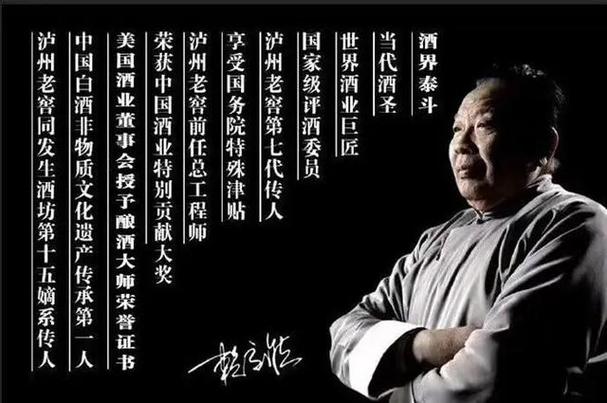 酒界泰斗
当代酒圣
世界酒业巨匠
国家级评酒委员
泸州老窖第七代传人
享受国务院特殊津贴
泸州老窖前任总工程师
荣获中国酒业特别贡献大奖
美国酒业董事会授予酿酒大师荣誉证书
中国白酒非物质文化遗产传承第一人
泸州老窖同发生酒坊第十五嫡系传人